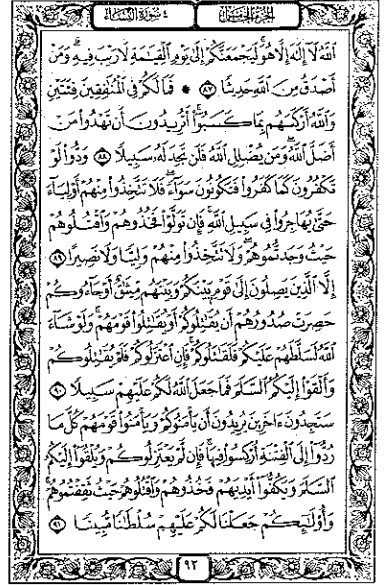 الجزء الخامس
٤ سورة النساء
ٱللَّهُ لَآ إِلَٰهَ إِلَّا هُوَ لَيَجْمَعَنَّكُمْ إِلَىٰ يَوْمِ ٱلْقِيَٰمَةِ لَا رَيْبَ فِيهِ وَمَنْ
أَصْدَقُ مِنَ ٱللَّهِ حَدِيثًا ٨٧ ۞ فَمَا لَكُمْ فِى ٱلْمُنَٰفِقِينَ فِئَتَيْنِ
وَٱللَّهُ أَرْكَسَهُم بِمَا كَسَبُوٓا۟ أَتُرِيدُونَ أَن تَهْدُوا۟ مَنْ
أَضَلَّ ٱللَّهُ وَمَن يُضْلِلِ ٱللَّهُ فَلَن تَجِدَ لَهُۥ سَبِيلًا ٨٨ وَدُّوا۟ لَوْ
تَكْفُرُونَ كَمَا كَفَرُوا۟ فَتَكُونُونَ سَوَآءً فَلَا تَتَّخِذُوا۟ مِنْهُمْ أَوْلِيَآءَ
حَتَّىٰ يُهَاجِرُوا۟ فِى سَبِيلِ ٱللَّهِ فَإِن تَوَلَّوْا۟ فَخُذُوهُمْ وَٱقْتُلُوهُمْ
حَيْثُ وَجَدتُّمُوهُمْ وَلَا تَتَّخِذُوا۟ مِنْهُمْ وَلِيًّا وَلَا نَصِيرًا ٨٩
إِلَّا ٱلَّذِينَ يَصِلُونَ إِلَىٰ قَوْمٍۭ بَيْنَكُمْ وَبَيْنَهُم مِّيثَٰقٌ أَوْ جَآءُوكُمْ
حَصِرَتْ صُدُورُهُمْ أَن يُقَٰتِلُوكُمْ أَوْ يُقَٰتِلُوا۟ قَوْمَهُمْ وَلَوْ شَآءَ
ٱللَّهُ لَسَلَّطَهُمْ عَلَيْكُمْ فَلَقَٰتَلُوكُمْ فَإِنِ ٱعْتَزَلُوكُمْ فَلَمْ يُقَٰتِلُوكُمْ
وَأَلْقَوْا۟ إِلَيْكُمُ ٱلسَّلَمَ فَمَا جَعَلَ ٱللَّهُ لَكُمْ عَلَيْهِمْ سَبِيلًا ٩٠
سَتَجِدُونَ ءَاخَرِينَ يُرِيدُونَ أَن يَأْمَنُوكُمْ وَيَأْمَنُوا۟ قَوْمَهُمْ كُلَّ مَا
رُدُّوٓا۟ إِلَى ٱلْفِتْنَةِ أُرْكِسُوا۟ فِيهَا فَإِن لَّمْ يَعْتَزِلُوكُمْ وَيُلْقُوٓا۟ إِلَيْكُمُ
ٱلسَّلَمَ وَيَكُفُّوٓا۟ أَيْدِيَهُمْ فَخُذُوهُمْ وَٱقْتُلُوهُمْ حَيْثُ ثَقِفْتُمُوهُمْ
وَأُو۟لَٰٓئِكُمْ جَعَلْنَا لَكُمْ عَلَيْهِمْ سُلْطَٰنًا مُّبِينًا ٩١
٩٢